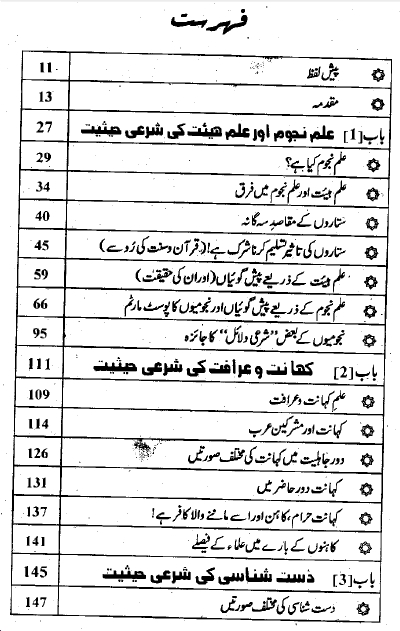 فہرست
پیش لفظ 11
مقدمہ 13
باب [1] علم نجوم اور علم ھیئت کی شرعی حیثیت 27
علم نجوم کیا ہے؟ 29
علم ہیئت اور علم نجوم میں فرق 34
ستاروں کے مقاصد سہ گانہ 40
ستاروں کی تاثیر تسلیم کرنا شرک ہے! (قرآن وسنت کی رُو سے) 45
علم ہیئت کے ذریعے پیش گوئیاں (اور ان کی حقیقت) 59
علم نجوم کے ذریعے پیش گوئیاں اور نجومیوں کا پوسٹ مارٹم 66
نجومیوں کے بعض ”شرعی دلائل“ کا جائزہ 95
باب [2] کھانت و عرافت کی شرعی حیثیت 111
علم کہانت و عرافت 109
کہانت اور مشرکین عرب 114
دور جاہلیت میں کہانت کی مختلف صورتیں 126
کہانت دور حاضر میں 131
کہانت حرام، کاہن اور اسے ماننے والا کافر ہے! 137
کاہنوں کے بارے میں علماء کے فیصلے 141
باب [3] دست شناسی کی شرعی حیثیت 145
دست شناسی کی مختلف صورتیں 147